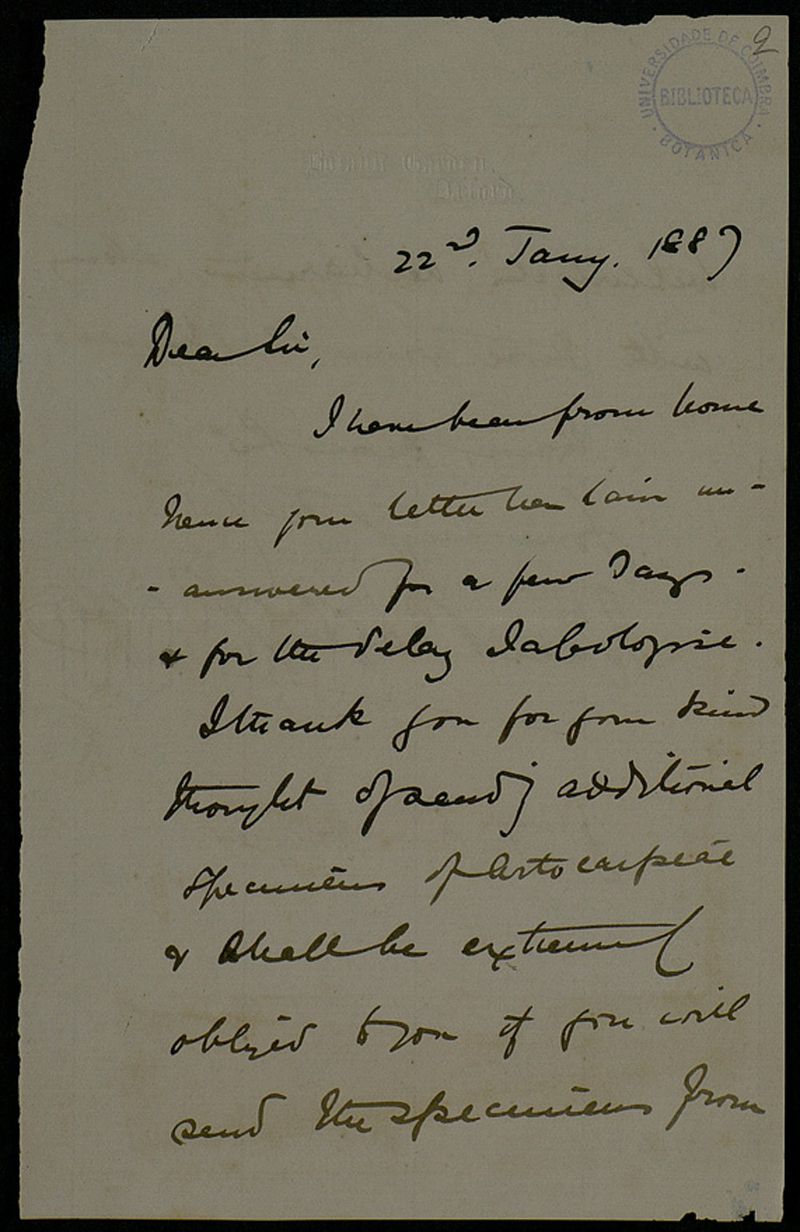 9
UNIVERSIDADE DE COIMBRA
BIBLIOTECA
BOTANICA
Botanic Garden,
Oxford.
22nd. Jany. 1887
Dear Sir,
I have been from home
hence your letter has lain un-
- answered for a few days -
& for the delay I apologise.
I thank you for your kind
thought of sending additional
specimens of Artocarpeae
& shall be extremely
obliged to you if you will
send the specimens from